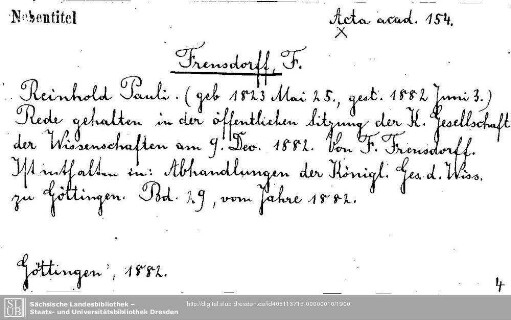 Nebentitel
Acta acad. 154.
Frensdorff, F.
Reinhold Pauli. (geb 1823 Mai 25., gest. 1882 Juni 3.)
Rede gehalten in der öffentlichen Sitzung der K. Gesellschaft
der Wissenschaften am 9. Dec. 1882. Von F. Frensdorff.
Ist enthalten in: Abhandlungen der Königl. Ges. d. Wiss.
zu Göttingen. Bd. 29, vom Jahre 1882.
Göttingen, 1882.
4
SLUB
Sächsische Landesbibliothek –
Staats- und Universitätsbibliothek Dresden